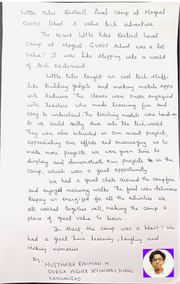 Little Kites District Level Camp at Mogral
GVHSS School A Value tech adventure
The recent Little Kites District Level
Camp at Mogral GVHSS School was a lot
value! It was like stepping into a world
of tech excitement
Little Kites taught us cool tech stuffs
like building gadgets and making mobile apps
with The classes were super engaged
with teachers who made learning fun and
easy to understand. The teaching was hands on
So we could really dive into the tech world.
They was also interested in our recent projects
appreciating our efforts and encouraging us to
make more projects. We are given time to
display and demonstrate our projects in the
camp, which was a great opportunity.
we had a great chats around the campfire
and enjoyed morning walks. The food was delicious
keeping us energized for all the activities. We
all worked together well, making the camp a
place of great value to learn.
In short the camp was a blast! We
had a great time learning, laughing and
Making memories.
By,
MUJTHABA RAHMAN M
DURGA HIGHER SECONDARY SCHOOL
KANHANGAD